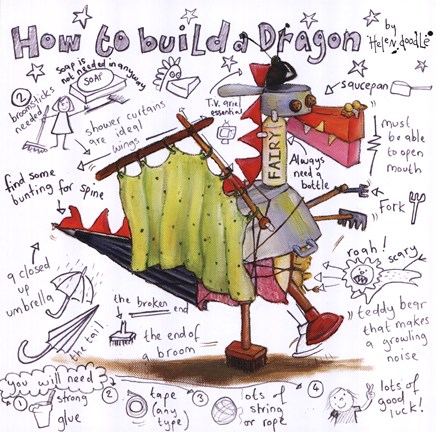 How to build a Dragon
by
Helen doodle
soap is
not needed in anyway
SOAP
2
broomsticks
needed
shower curtains
are ideal
wings
T.V. ariel
essential
saucepan
must be
able to
open
mouth
FAIRY
Always
need a
bottle
find some
bunting for spine
Fork
roah!
scary
a closed
up
umbrella
the tail
the broken end
the end of
a broom
teddy bear
that makes
a growling
noise
you will need
1
strong
glue
2
tape
(any
type)
3
lots of
string
or rope
4
lots of
good
luck!